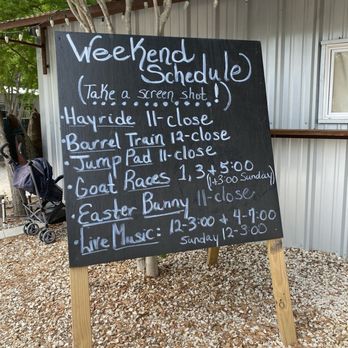 Weekend
Schedule
(Take a screen shot!)
• Hayride 11-close
• Barrel Train 12-close
• Jump Pad 11-close
• Goat Races 1, 3, + 5:00
(1+3:00 Sunday)
• Easter Bunny 11-close
• Live Music: 12-3:00 + 4-7:00
Sunday 12-3:00